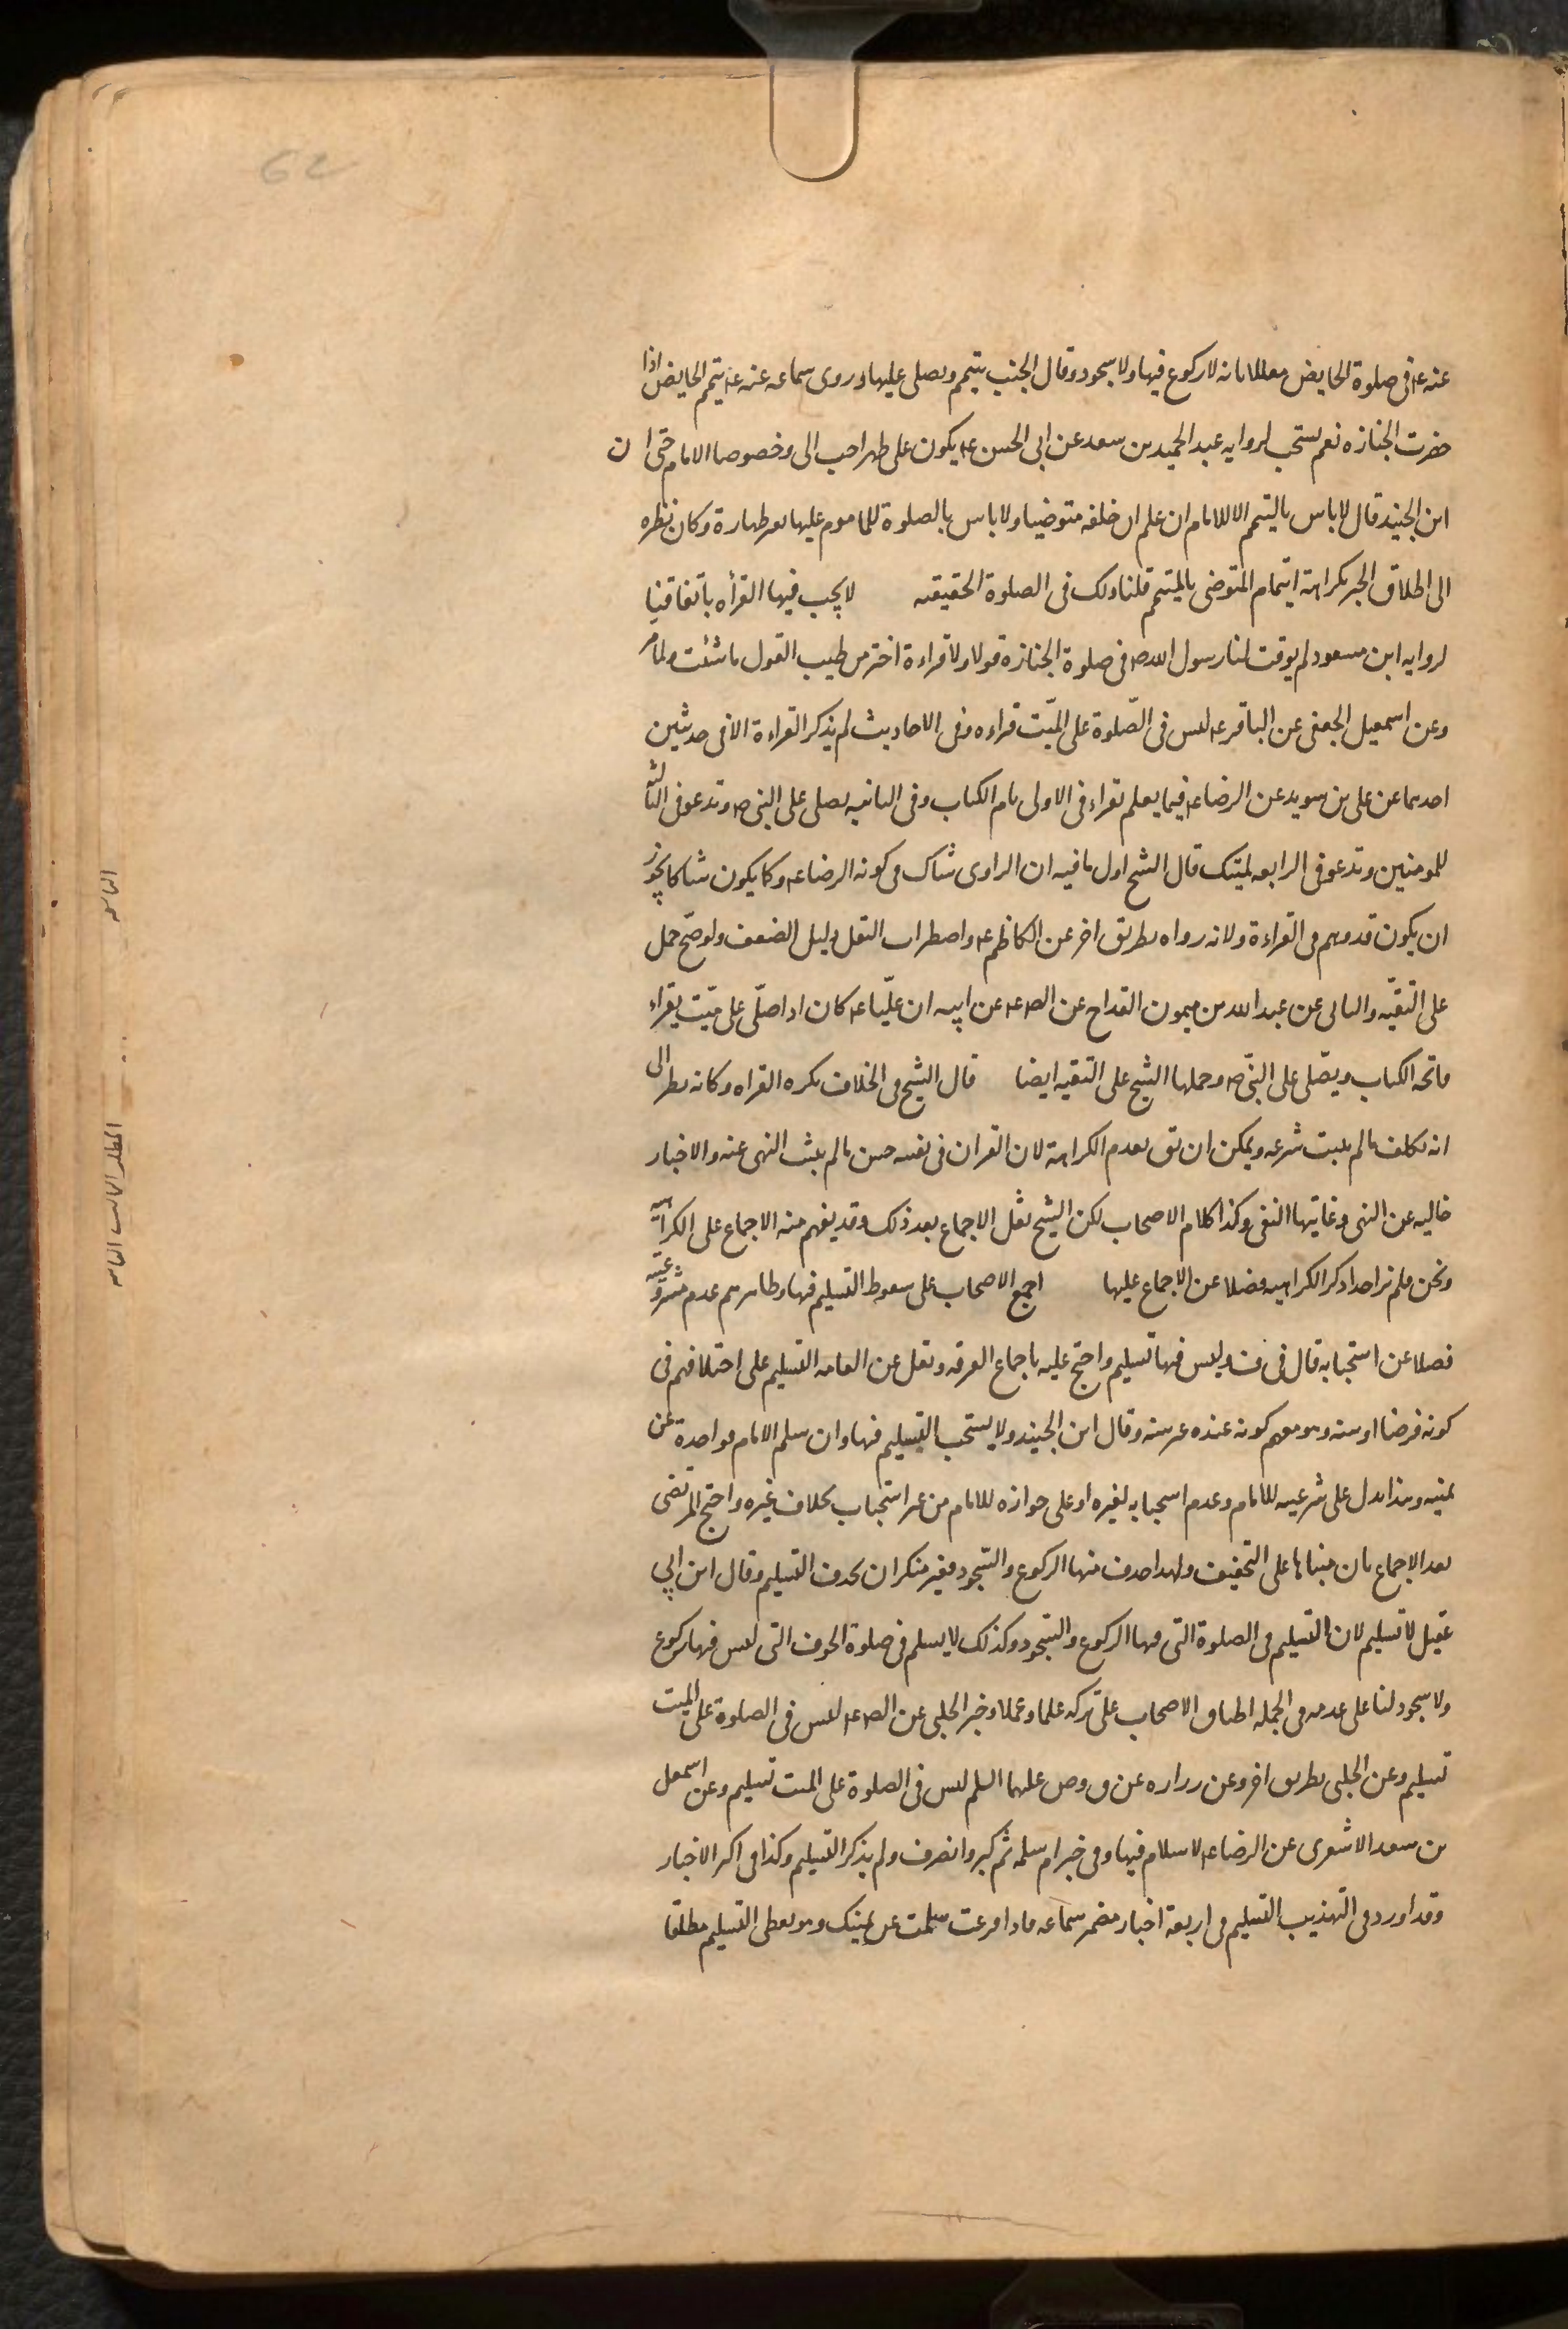 62
عنه ع۴ فى صلوة الحايض معللا بانه لا ركوع فيها ولا سجود وقال الجنب يتيمم ويصلى عليها وروى سماعه عنه ع۴ يتيمم الحايض اذا
حضرت الجنازه نعم يستحب لروايه عبد الحميد بن سعد عن ابى الحسن ع۴ يكون على طهر احب الى وخصوصا الامام حتى ان
ابن الجنيد قال لا باس بالتيمم الا للامام ان علم ان خلفه متوضيا ولا باس بالصلوة للماموم عليها بغير طهارة وكان نظره
الى اطلاق الخبر بكراهة ايتمام المتوضى بالمتيمم قلنا ذلك فى الصلوة الحقيقيه لا يجب فيها القرأه باتفاقنا
لروايه ابن مسعود لم يوقت لنا رسول الله ص فى صلوة الجنازة قولا ولا قراءة اختر من طيب القول ما شئت ولما مر
وعن اسمعيل الجعفى عن الباقر ع۴ ليس فى الصّلوة على الميّت قراءه وفى الاحاديث لم يذكر القراءة الا فى حديثين
احدهما عن على بن سويد عن الرضا ع۴ فيما يعلم تقراء فى الاولى بام الكتاب وفى الثانيه يصلى على النبى ص وتدعو فى الثالثه
للمومنين وتدعو فى الرابعه لميتك قال الشيخ اول ما فيه ان الراوى شاك فى كونه الرضا ع۴ وكما يكون شاكا يجوز
ان يكون قد وهم فى القراءة ولانه رواه بطريق اخر عن الكاظم ع۴ واضطراب النقل دليل الضعف ولو صحّ حمل
على التقيّه والثانى عن عبد الله بن ميمون القداح عن الص ع۴ عن ابيه ان عليّا ع۴ كان اذا صلّى على ميّت يقراء
فاتحه الكتاب ويصّلى على النبّى ص وحملها الشيخ على التقيه ايضا قال الشيخ فى الخلاف يكره القراه وكانه نظر الى
انه تكلف ما لم يثبت شرعه ويمكن ان يق بعدم الكراهة لان القران فى نفسه حسن ما لم يثبت النهى عنه والاخبار
خاليه عن النهى وغايتها النفى وكذا كلام الاصحاب لكن الشيخ نقل الاجماع بعد ذلك وقد يفهم منه الاجماع على الكراهيه
ونحن فلم نر احدا ذكر الكراهيه فضلا عن الاجماع عليها اجمع الاصحاب على سقوط التسليم فيها وظاهرهم عدم مشروعيته
فضلا عن استحبابه قال فى ف وليس فيها تسليم واحتج عليه باجماع الفرقه ونقل عن العامه التسليم على اختلافهم فى
كونه فرضا او سنه وهو يفهم كونه عنده غير سنه وقال ابن الجنيد ولا يستحب التسليم فيها وان سلم الامام فواحدة عن
يمينه وهذا يدل على شرعيه للامام وعدم استحبابه لغيره او على جوازه للامام من غير استحباب بخلاف غيره واحتج المرتضى
بعد الاجماع بان مبناها على التخفيف ولهذا حذف منها الركوع والسّجود فغير منكر ان يحذف التسليم وقال ابن ابى
عقيل لا تسليم لان التسليم فى الصلوة التى فيها الركوع والسّجود وكذلك لا يسلم فى صلوة الخوف التى ليس فيها ركوع
ولا سجود لنا على عدمه فى الجمله اطباق الاصحاب على تركه علما وعملا وخبر الحلبى عن الص ع۴ ليس فى الصلوة على الميت
تسليم وعن الحلبى بطريق اخر وعن زراره عن ق وص عليهما السلم ليس فى الصلوة على الميت تسليم وعن اسمعيل
بن سعد الاشعرى عن الرضا ع۴ لا سلام فيها وفى خبر ام سلمه ثم كبر وانصرف ولم يذكر التسليم وكذا فى اكثر الاخبار
وقد اورد فى التهذيب التسليم فى اربعة اخبار مضمر سماعه فاذا فرغت سلمت عن يمينك وهو يعطى التسليم مطلقا